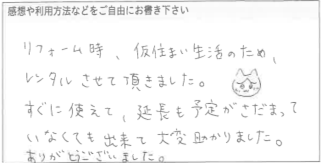 感想や利用方法などをご自由にお書き下さい
リフォーム時、仮住まい生活のため、
レンタルさせて頂きました。
すぐに使えて、延長も予定がさだまって
いなくても出来て大変助かりました。
ありがとうございました。